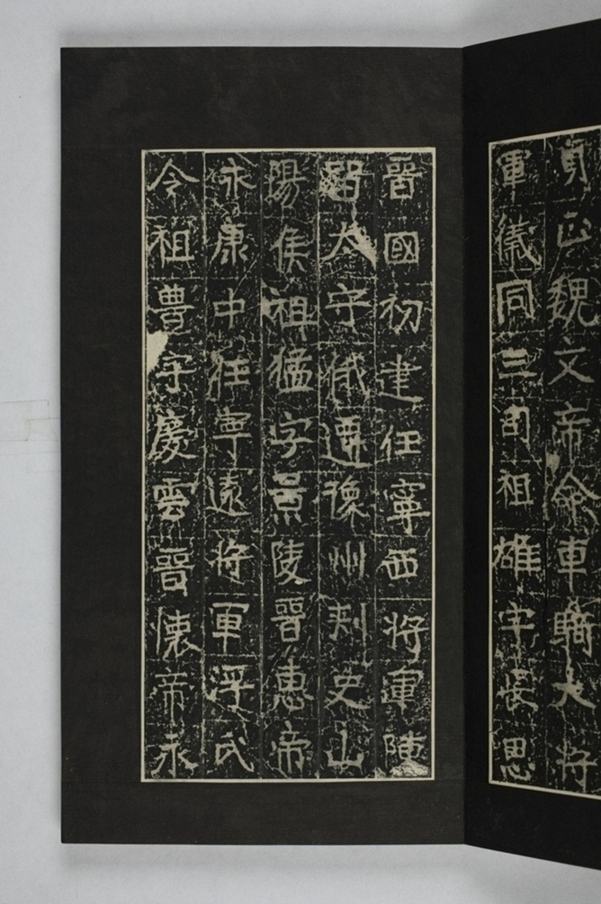 正魏文帝僉車騎大將
軍儀同三司祖雄字長思
晉國初建任寧西將軍陳
留太守俄遷豫州刺史山
陽侯祖猛字景陵晉惠帝
永康中任寧遠將軍浮氏
令祖豐字慶雲晉懷帝永